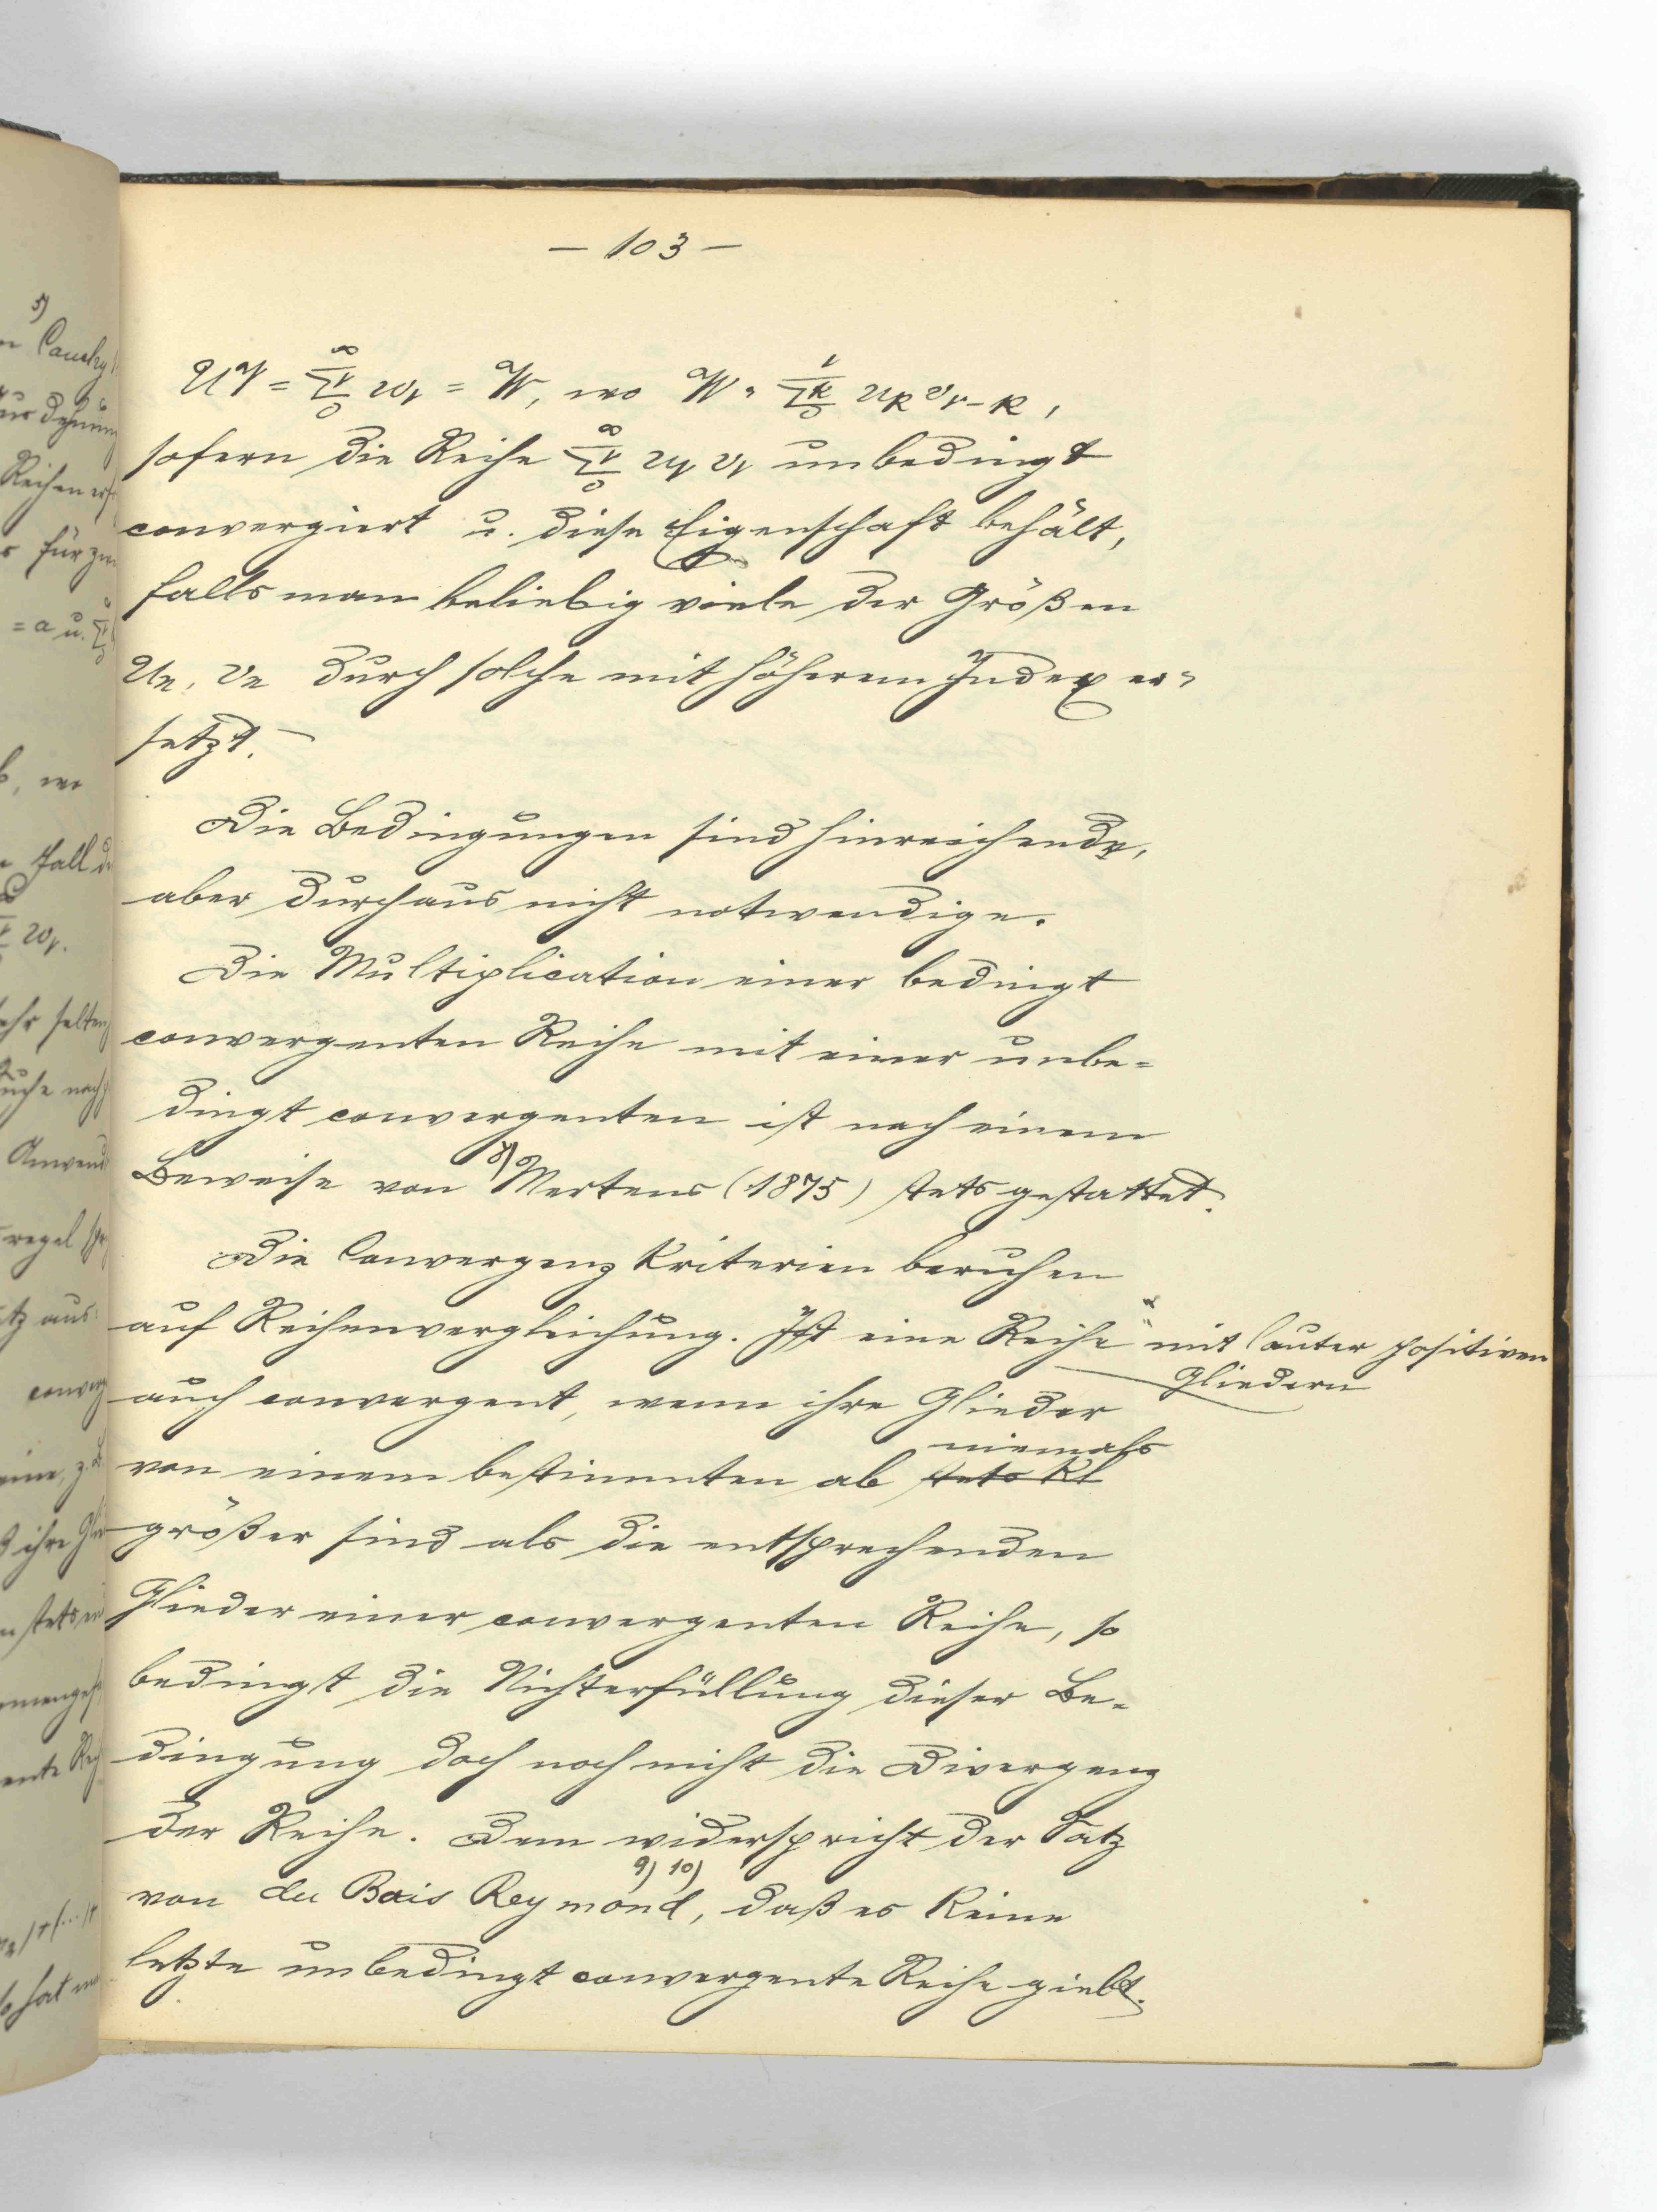 — 103 —
UV = ∞ Σν 0 wν = W, wo W = ν Σk 0 uk vν-k,
sofern die Reihe ∞ Σν 0 uν vν unbedingt
convergiert u. diese Eigenschaft behält,
falls man beliebig viele der Größen
un, vn durch solche mit höherem Index er=
setzt. —
Die Bedingungen sind hinreichende,
aber durchaus nicht notwendige.
Die Multiplication einer bedingt
convergenten Reihe mit einer unbe=
dingt convergenten ist nach einem
Beweise von 8) Mertens (1875) stets gestattet.
Die Convergenz Kriterien beruhen
auf Reihenvergleichung. Ist eine Reihe mit lauter positiven
Gliedern
auch convergent, wenn ihre Glieder
niemals
von einem bestimmten ab stets kl
größer sind als die entsprechenden
Glieder einer convergenten Reihe, so
bedingt die Nichterfüllung dieser Be=
dingung doch noch nicht die Divergenz
der Reihe. Dem widerspricht der Satz
9) 10)
von du Bois Reymond, daß es keine
letzte unbedingt convergente Reihe giebt.